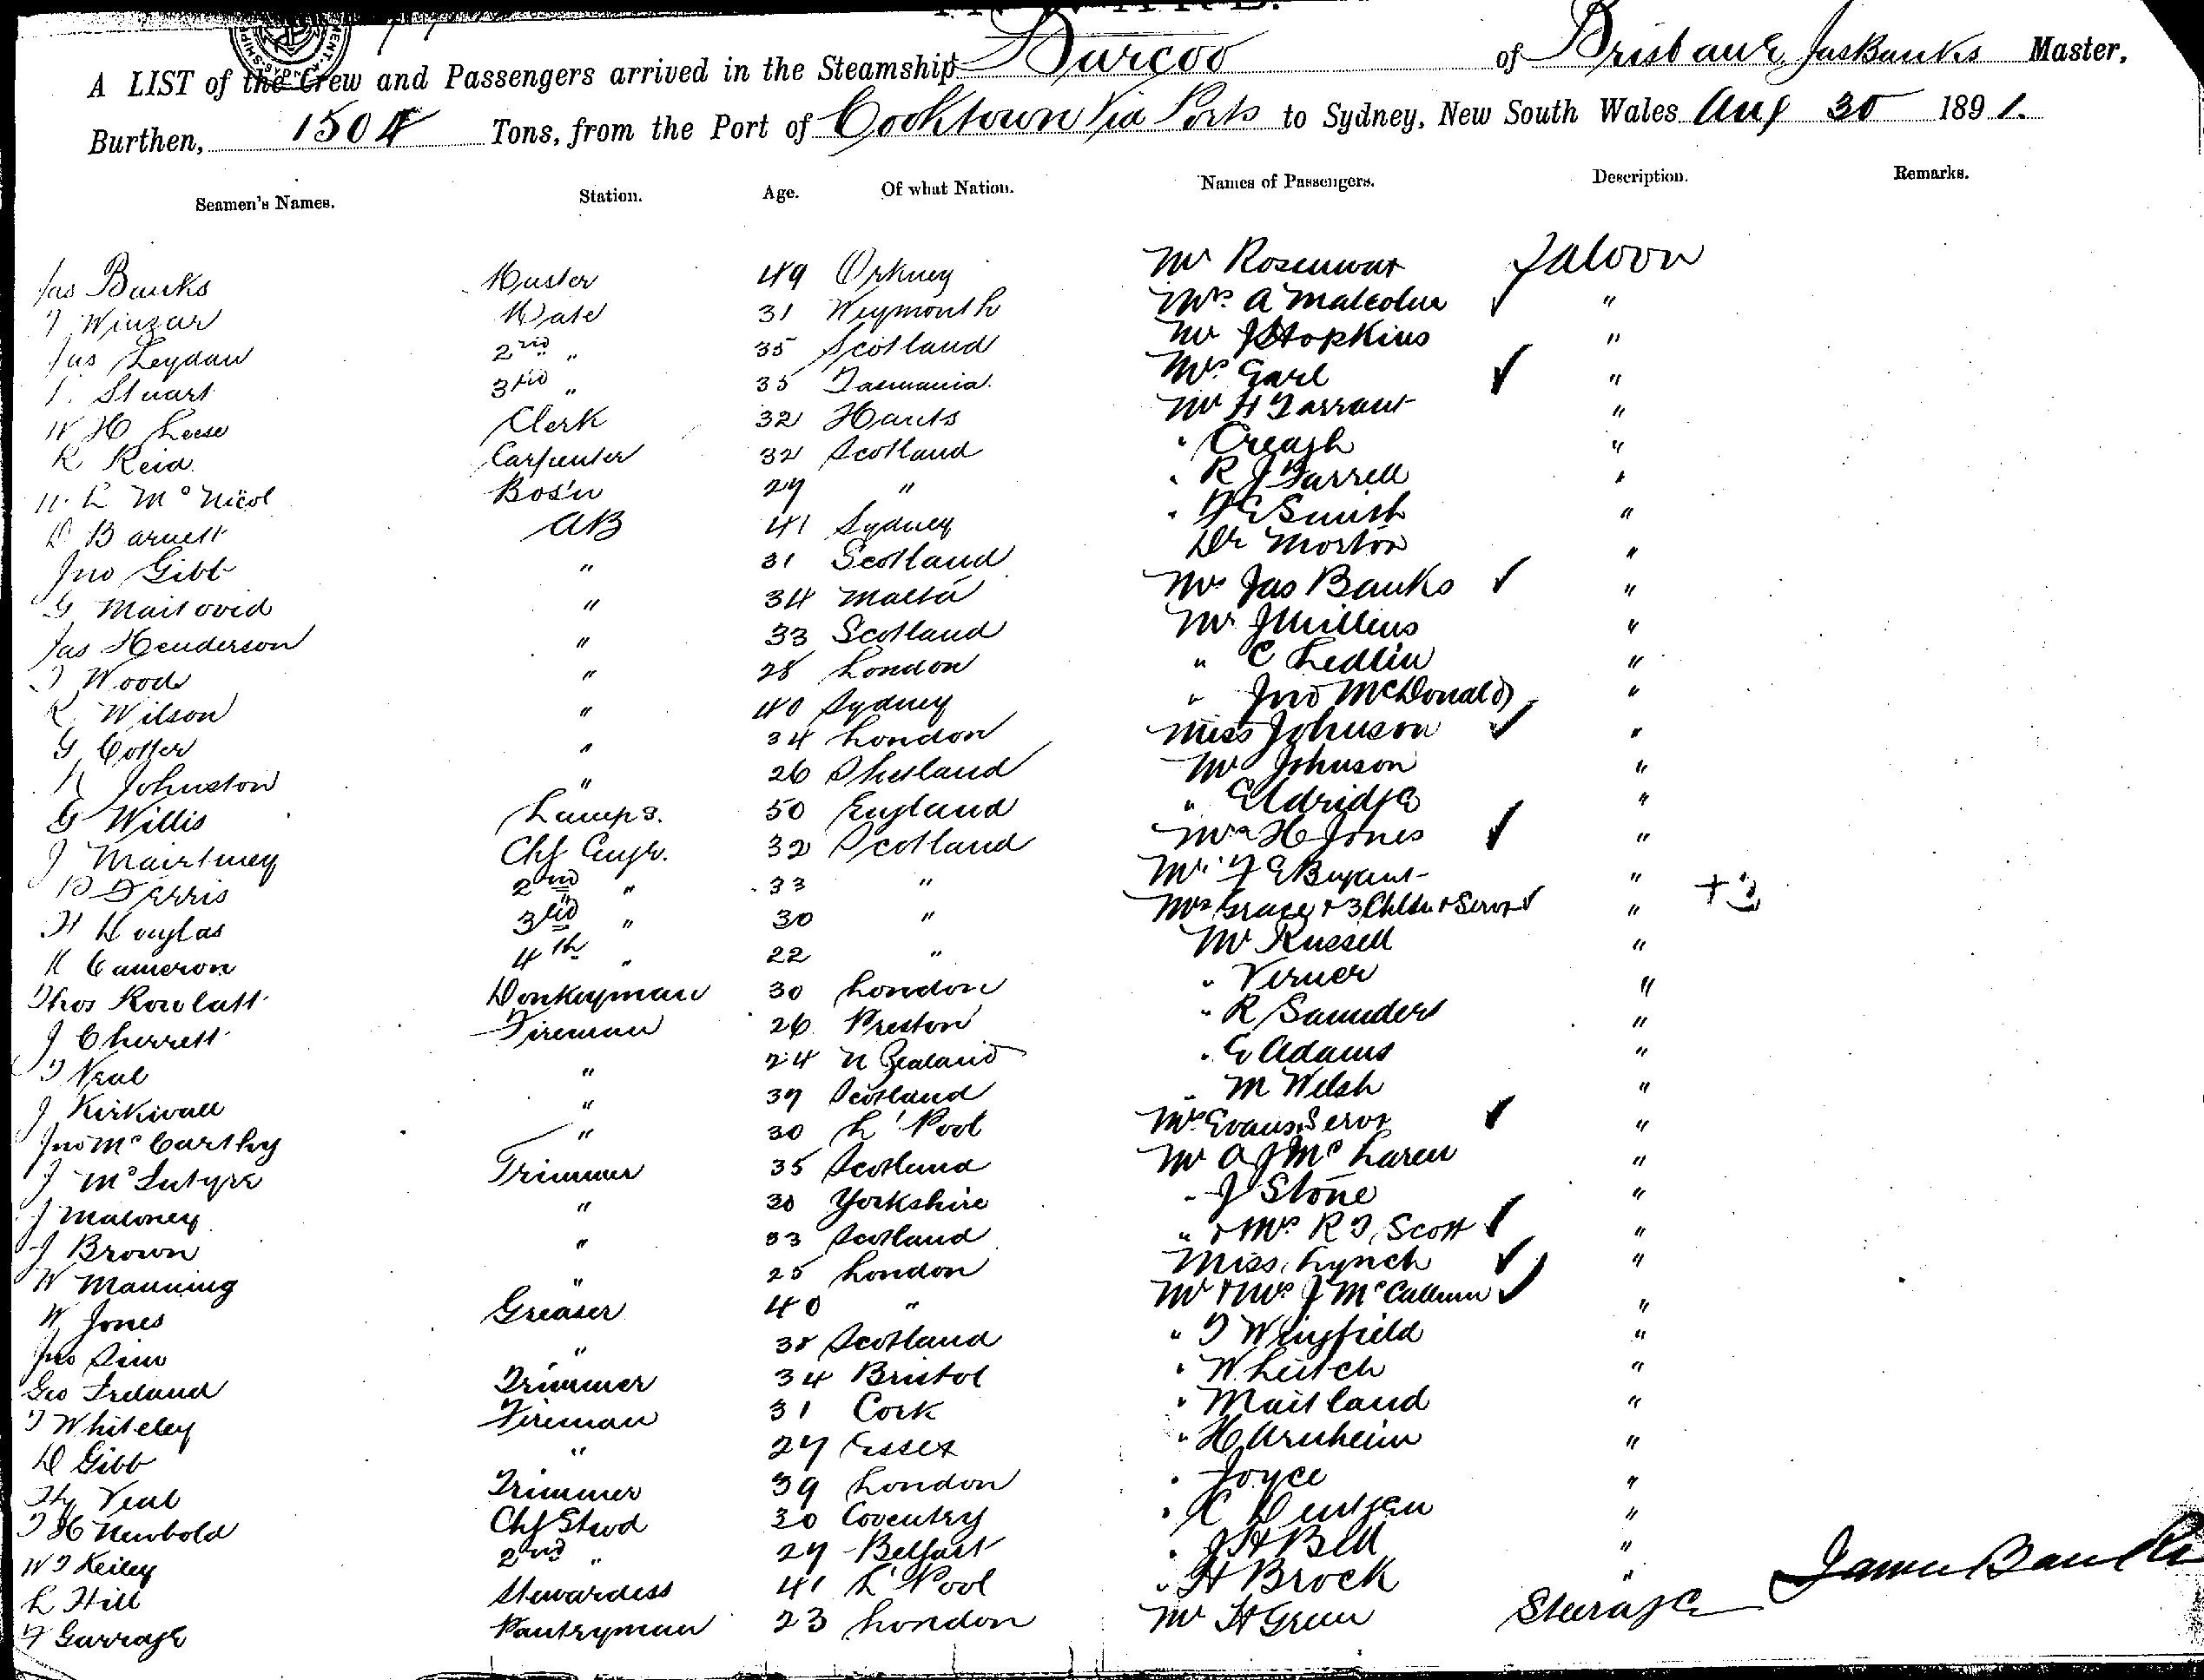 A LIST of the Crew and Passengers arrived in the Steamship Barcoo of Brisbane, Jas Banks Master,
Burthen, 1504 Tons, from the Port of Cooktown Via Ports to Sydney, New South Wales Aug 30 1891.
Seamen's Names. Station. Age. Of what Nation. Names of Passengers. Description. Remarks.
Jas Banks Master 49 Orkney Mr Rosenwax Saloon
T Winzar Mate 31 Weymouth Mrs A Malcolm ✓ "
Jas Leydan 2nd " 35 Scotland Mr J Hopkins "
Stuart 3rd " 35 Tasmania Mrs Garl ✓ "
W H Leese Clerk 32 Hants Mr H Tarrant "
R Reid Carpenter 32 Scotland " Creagh "
McNicol Bos'n 27 " " R J Farrell "
D Barnett AB 41 Sydney " Smith "
Jno Gibb " 31 Scotland Dr Morton "
G Maitovid " 34 Malta Mrs Jas Banks ✓ "
Jas Henderson " 33 Scotland Mr J Millens "
T Wood " 28 London " C Ledlin "
R Wilson " 40 Sydney " Jno McDonald "
G Cotter " 34 London Miss Johnson ✓ "
Johnston " 26 Shetland Mr Johnson "
G Willis Lamps. 50 England " Eldridge "
J Mairtney Chf Engr. 32 Scotland Mrs H Jones ✓ "
P Ferris 2nd " 33 " Mr F E Bryant "
H Douglas 3rd " 30 " Mrs Grace + 3 Chldn + Servt ✓ " +3
K Cameron 4th " 22 " Mr Russell "
Thos Rowlatt Donkeyman 30 London " Verner "
J Cherrett Fireman 26 Preston " R Saunders "
T Neal " 24 N Zealand " E Adams "
J Kirkwall " 37 Scotland " M Welsh "
Jno McCarthy " 30 L'Pool Mrs Evans, Servt ✓ "
J McIntyre Trimmer 35 Scotland Mr A J McLaren "
J Maloney " 30 Yorkshire " J Stone "
J Brown " 33 Scotland " + Mrs R T Scott ✓ "
W Manning " 25 London Miss Lynch ✓ "
W Jones Greaser 40 " Mr + Mrs J McCallum ✓ "
Jno Sim " 38 Scotland " T Wingfield "
Geo Ireland Trimmer 34 Bristol " W Leitch "
T Whiteley Fireman 31 Cork " Maitland "
D Gibb " 27 Essex " H Arnheim "
Hy Veal Trimmer 39 London " Joyce "
T H Newbold Chf Stwd 30 Coventry " C "
W T Keiley 2nd " 27 Belfast " J H Bell "
L Hill Stewardess 41 L'Pool " H Brock "
T Garrage Pantryman 23 London Mr H Green Steerage
James Banks